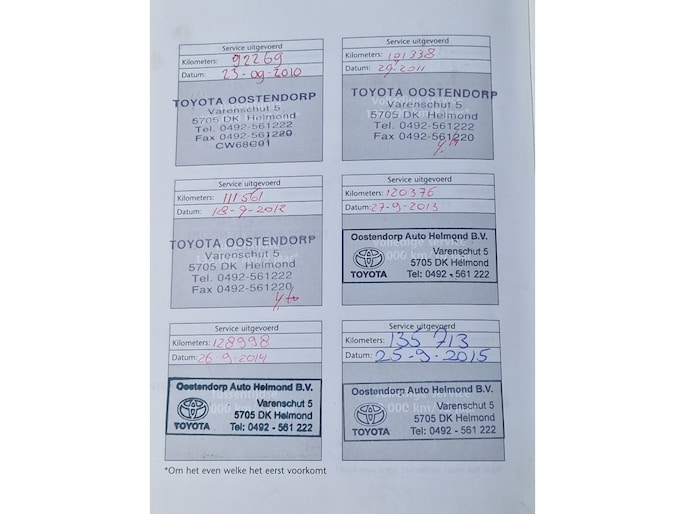 Service uitgevoerd
Kilometers: 92269
Datum: 23-09-2010
TOYOTA OOSTENDORP
Varenschut 5
5705 DK Helmond
Tel. 0492-561222
Fax 0492-561220
CW68C01
Service uitgevoerd
Kilometers: 101338
Datum: 29-9-2011
TOYOTA OOSTENDORP
Varenschut 5
5705 DK Helmond
Tel. 0492-561222
Fax 0492-561220
Service uitgevoerd
Kilometers: 111561
Datum: 18-9-2012
TOYOTA OOSTENDORP
Varenschut 5
5705 DK Helmond
Tel. 0492-561222
Fax 0492-561220
Service uitgevoerd
Kilometers: 120376
Datum: 27-9-2013
Oostendorp Auto Helmond B.V.
Varenschut 5
5705 DK Helmond
TOYOTA Tel: 0492 - 561 222
Service uitgevoerd
Kilometers: 128998
Datum: 26-9-2014
Oostendorp Auto Helmond B.V.
Varenschut 5
5705 DK Helmond
TOYOTA Tel: 0492 - 561 222
Service uitgevoerd
Kilometers: 135 713
Datum: 25-9-2015
Oostendorp Auto Helmond B.V.
Varenschut 5
5705 DK Helmond
TOYOTA Tel: 0492 - 561 222
*Om het even welke het eerst voorkomt